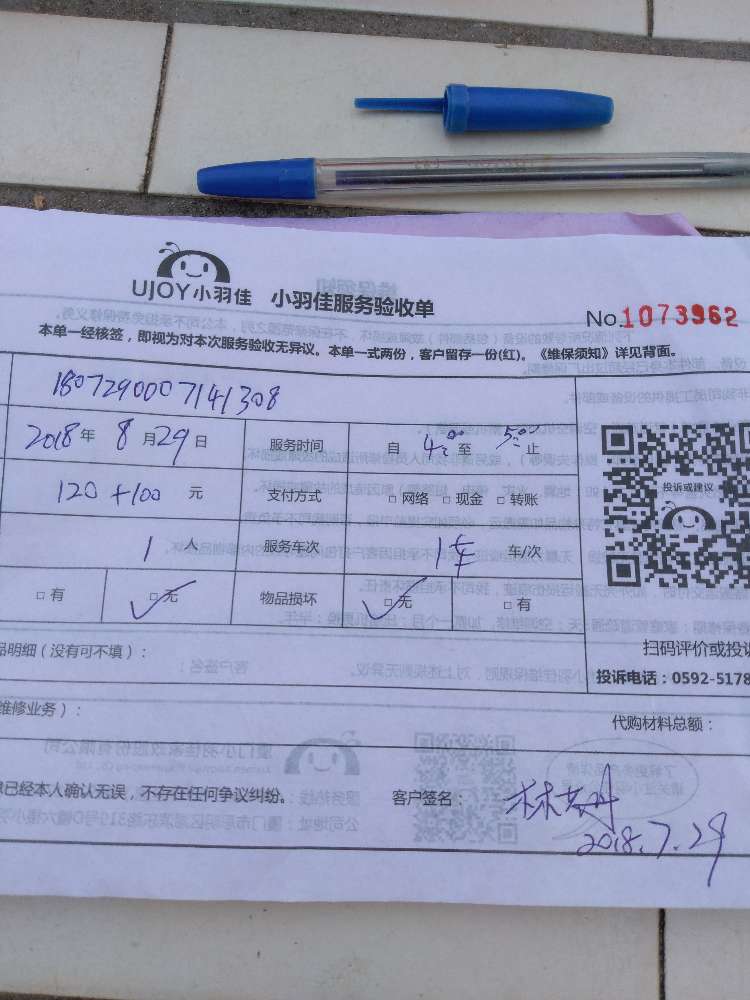 UJOY小羽佳 小羽佳服务验收单
No.1073962
本单一经核签，即视为对本次服务验收无异议。本单一式两份，客户留存一份(红)。《维保须知》详见背面。
1807290007141308
2018年8月29日 服务时间 自 4:00 至 5:00 止
120+100 元 支付方式 □网络 □现金 □转账
1 人 服务车次 1车 车/次
□有 □无 物品损坏 □无 □有
投诉或建议
品明细（没有可不填）：
扫码评价或投诉
投诉电话：0592-5178
维修业务）：
代购材料总额：
已经本人确认无误，不存在任何争议纠纷。 客户签名：
2018.7.29